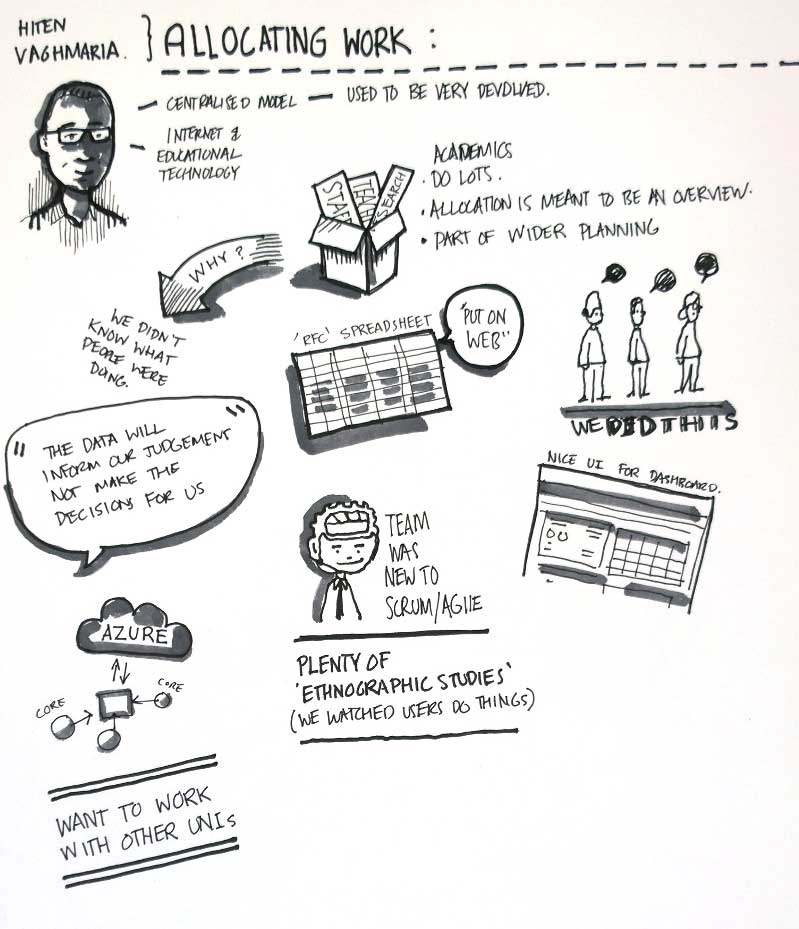 HITEN
VAGHMARIA.
ALLOCATING WORK :
— CENTRALISED MODEL — USED TO BE VERY DEVOLVED.
— INTERNET &
EDUCATIONAL
TECHNOLOGY
STAFF
TEACH
SEARCH
ACADEMICS
• DO LOTS.
• ALLOCATION IS MEANT TO BE AN OVERVIEW.
• PART OF WIDER PLANNING
WHY?
WE DIDN'T
KNOW WHAT
PEOPLE WERE
DOING.
'RFC' SPREADSHEET
"PUT ON
WEB"
WE DED THIS
"THE DATA WILL
INFORM OUR JUDGEMENT
NOT MAKE THE
DECISIONS FOR US"
NICE UI FOR DASHBOARD.
TEAM
WAS
NEW TO
SCRUM/AGILE
AZURE
CORE
CORE
PLENTY OF
'ETHNOGRAPHIC STUDIES'
(WE WATCHED USERS DO THINGS)
WANT TO WORK
WITH OTHER UNIs